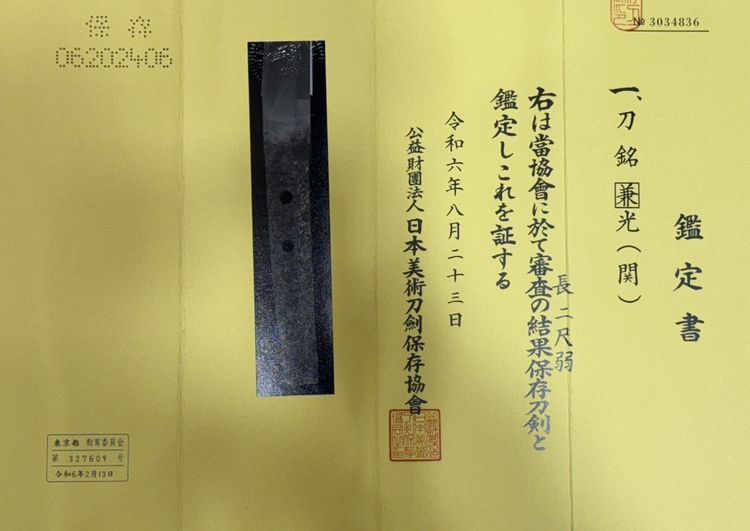 № 3034836
鑑定書
一、刀 銘 兼光(関)
長二尺弱
右は當協會に於て審査の結果保存刀剣と
鑑定しこれを証する
令和六年八月二十三日
公益財團法人 日本美術刀劍保存協會
保存
06202406
東京都 教育委員会
第 327609 号
令和6年2月13日